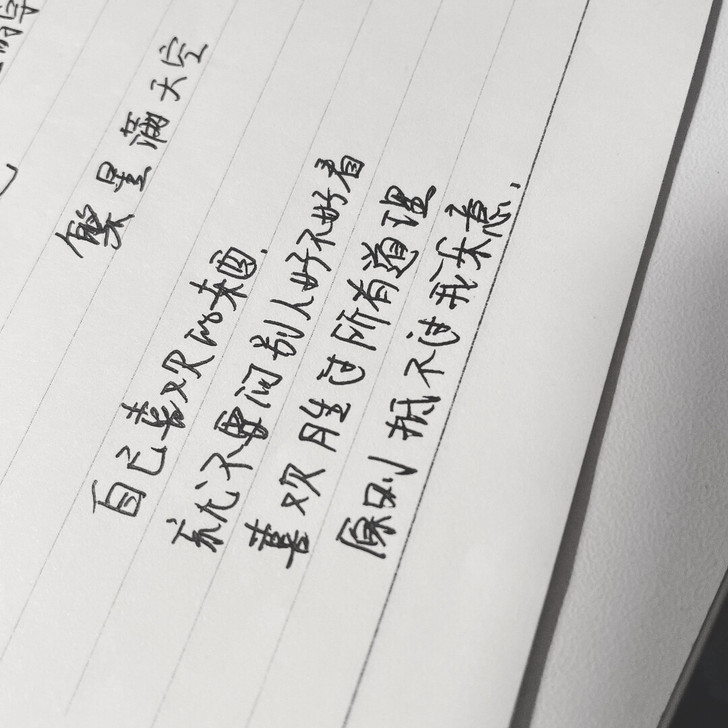 繁星满天空
自己喜欢的东西,
就不要问别人好不好看
喜欢胜过所有道理
原则抵不过我乐意,